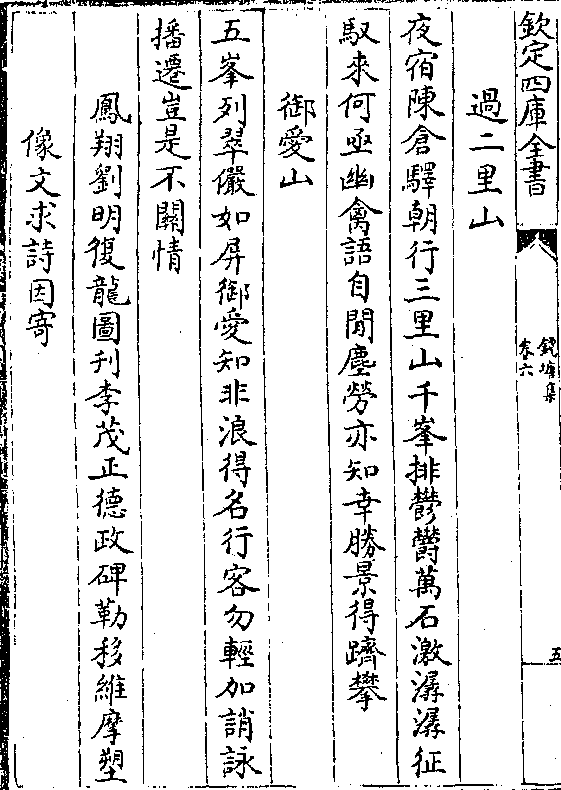 欽定四庫全書
錢塘集
卷六
五
過二里山
夜宿陳倉驛朝行三里山千峯排鬱鬱萬石激潺潺征
馭來何亟幽禽語自閒塵勞亦知幸勝景得躋攀
御愛山
五峯列翠儼如屏御愛知非浪得名行客勿輕加誚詠
播遷豈是不關情
鳳翔劉明復龍圖刊李茂正德政碑勒移維摩塑
像文求詩因寄